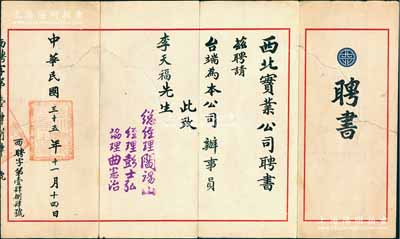 聘書
西北實業公司聘書
茲聘請
台端為本公司辦事員
此致
李天福先生
總經理閻錫山
經理彭士弘
協理曲憲治
中華民國三十五年十一月十四日
西聘字第壹肆捌肆號